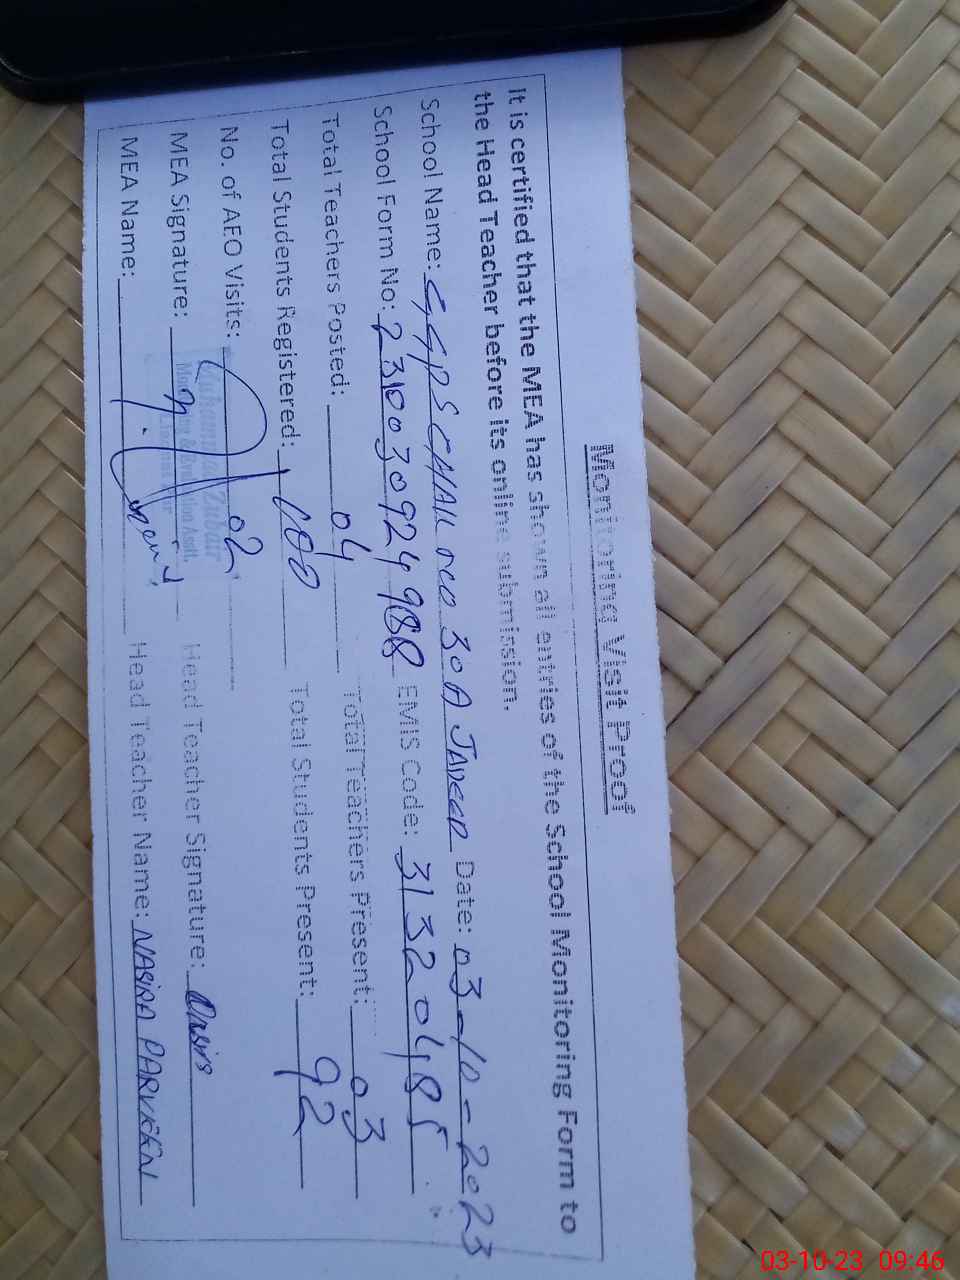 Monitoring Visit Proof
It is certified that the MEA has shown all entries of the School Monitoring Form to
the Head Teacher before its online submission.
School Name: GGPS CHAK NO 30A JADEED Date: 03-10-2023
School Form No: 231003092498 EMIS Code: 31320485
Total Teachers Posted: 04 Total Teachers Present: 03
Total Students Registered: 100 Total Students Present: 92
No. of AEO Visits: 02
MEA Signature: Head Teacher Signature:
MEA Name: Head Teacher Name: NASIRA PARVEEN
Muhammad Zubair
03-10-23 09:46